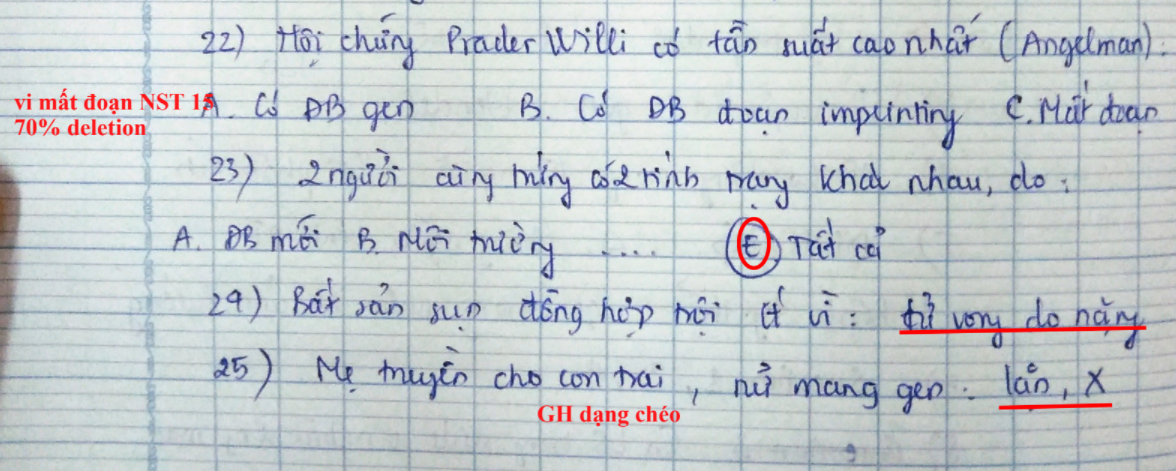 22) Hội chứng Prader Willi có tần suất cao nhất (Angelman).
vi mất đoạn NST 15 A. Có ĐB gen B. Có ĐB đoạn imprinting C. Mất đoạn
70% deletion
23) 2 người cùng trứng có 2 tính trạng khác nhau, do:
A. ĐB mới B. Môi trường .... E. Tất cả
24) Bất sản sụn đồng hợp trội ít vì: tử vong do nặng
25) Mẹ truyền cho con trai, nữ mang gen: lặn, X
GH dạng chéo